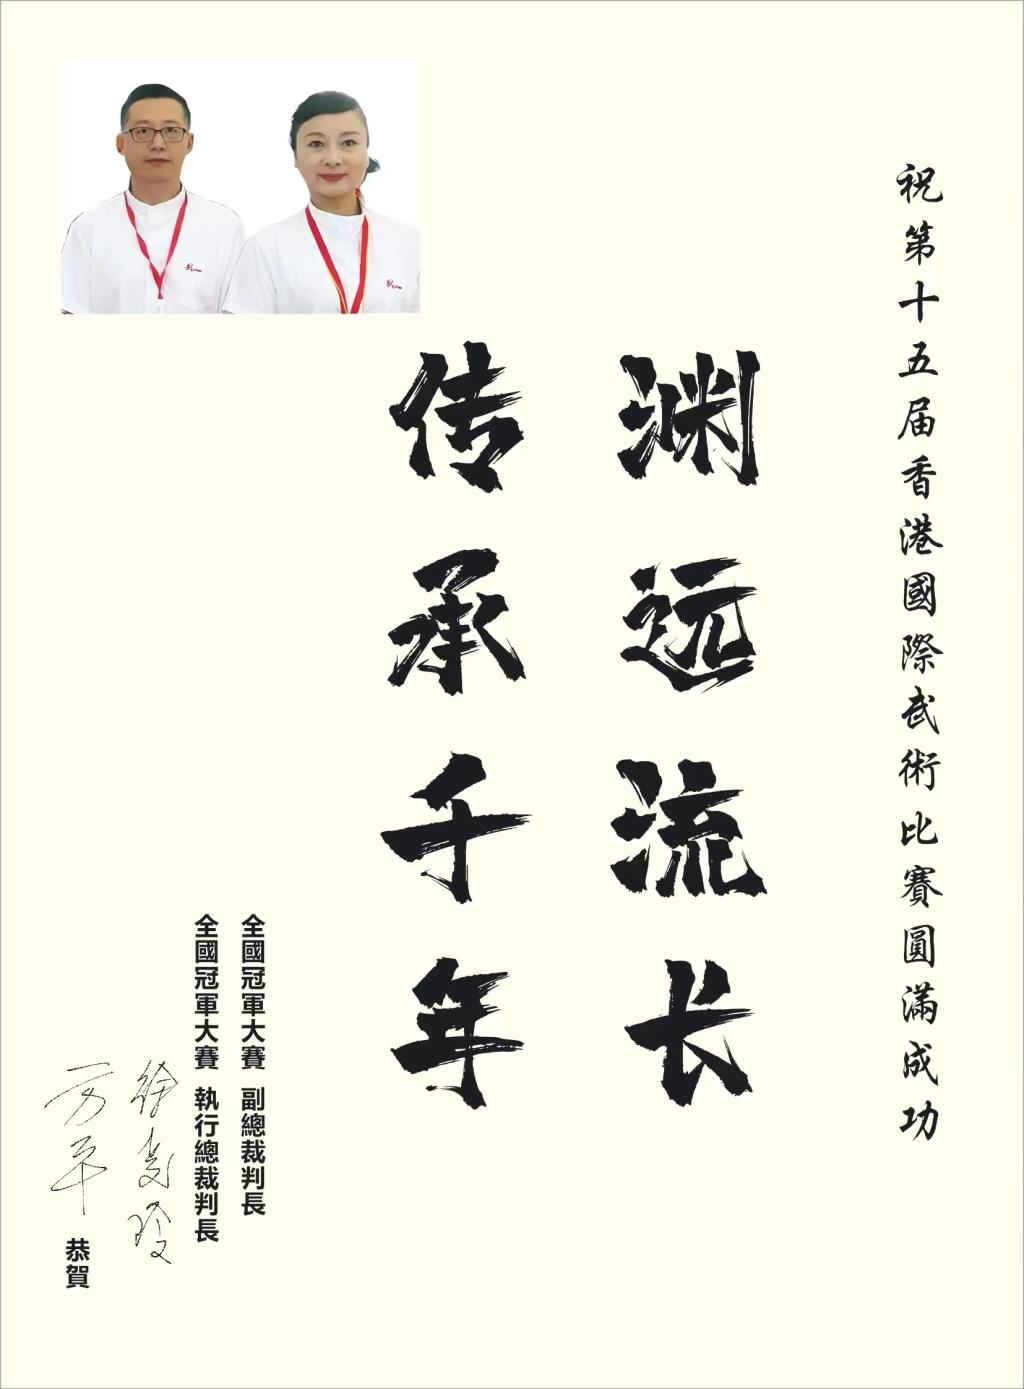 祝第十五届香港國際武術比賽圓滿成功
渊远流长
传承千年
全國冠軍大賽 副總裁判長
全國冠軍大賽 執行總裁判長
方平 恭賀